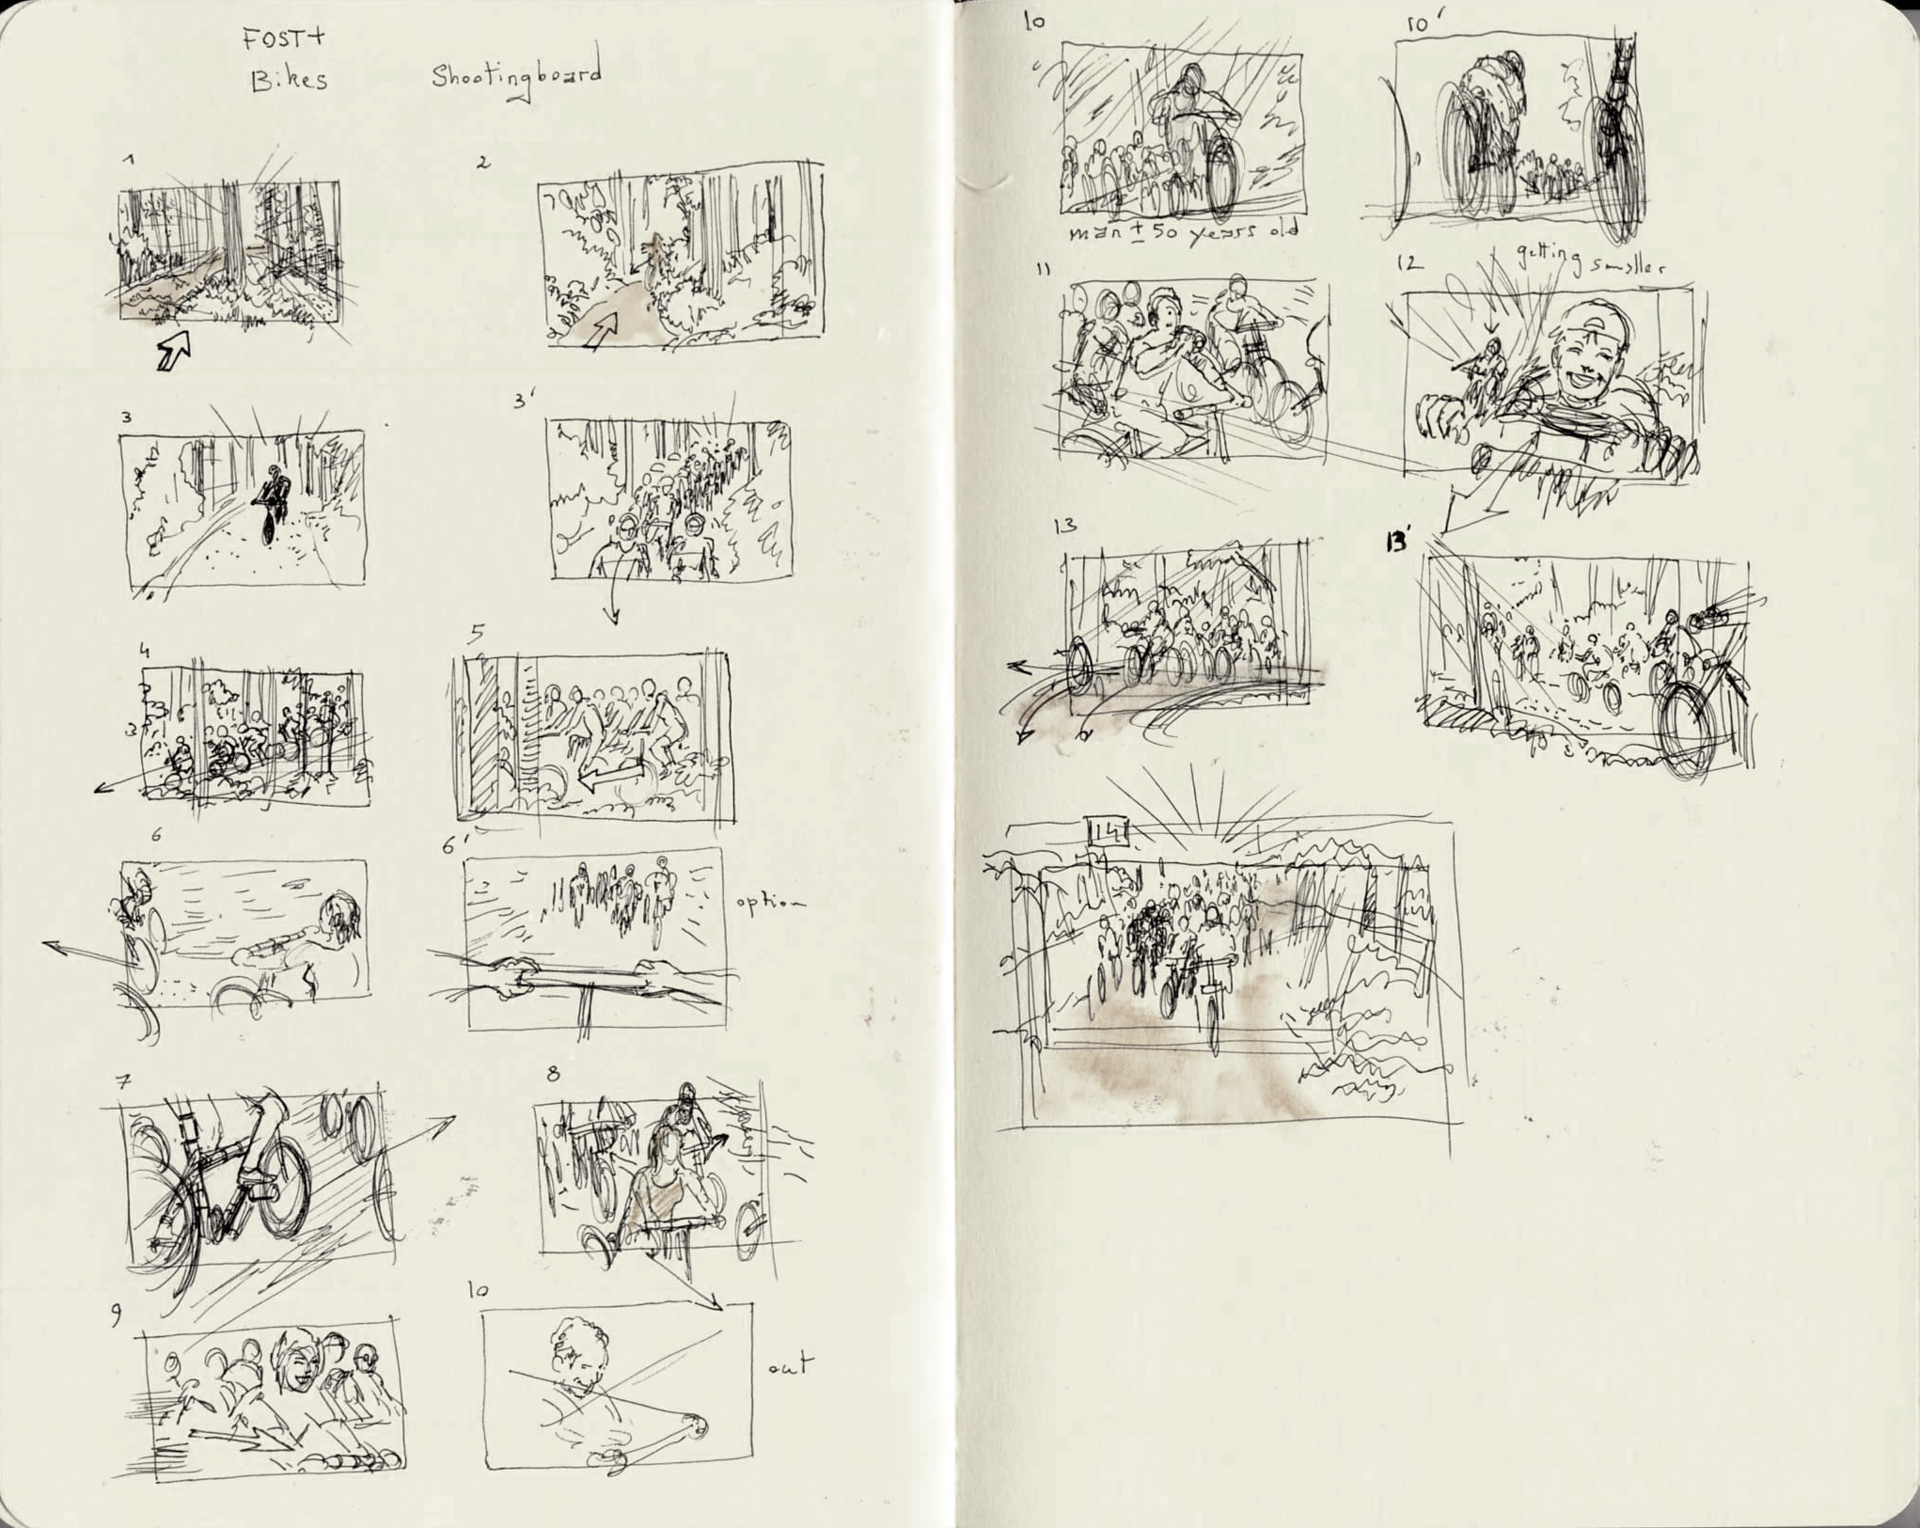 FOST+
Bikes
Shootingboard
1
2
3
3'
4
5
3
6
6'
option
7
8
9
10
out
10
10'
man ± 50 years old
11
12
getting smaller
13
13'
14